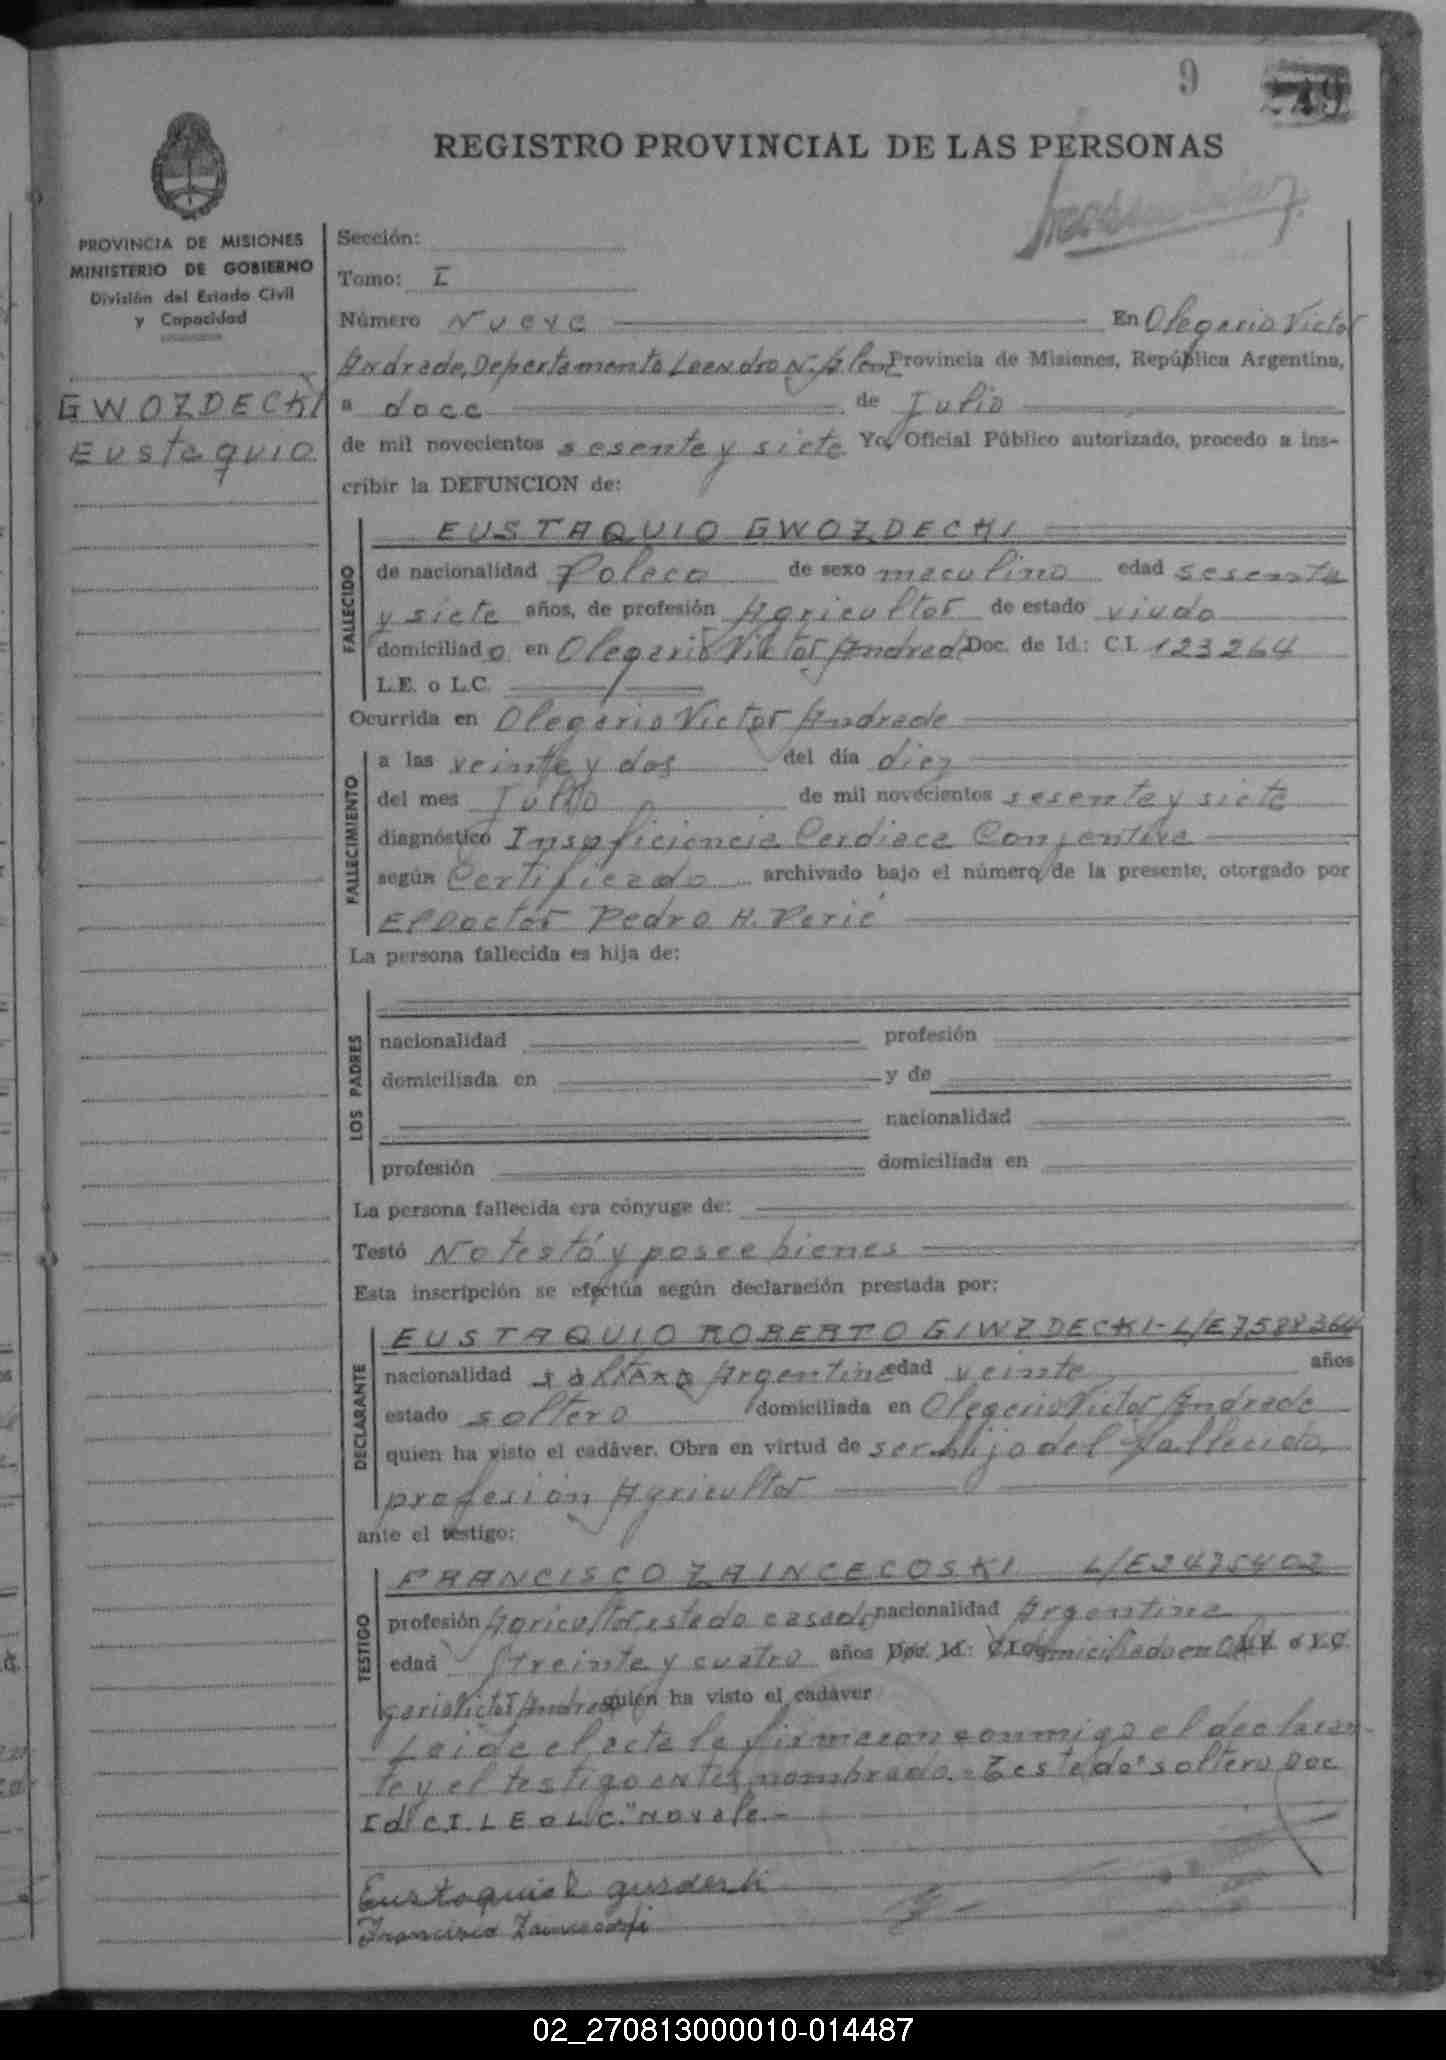 9
REGISTRO PROVINCIAL DE LAS PERSONAS
PROVINCIA DE MISIONES
MINISTERIO DE GOBIERNO
División del Estado Civil
y Capacidad
GWOZDECKI
Eustaquio
Sección:
Tomo: I
Número Nueve En Olegario Victor
Andrade, Departamento Leandro N. Alem Provincia de Misiones, República Argentina,
a doce de Julio
de mil novecientos sesenta y siete Yo, Oficial Público autorizado, procedo a ins-
cribir la DEFUNCION de:
FALLECIDO
EUSTAQUIO GWOZDECKI
de nacionalidad Polaca de sexo masculino edad sesenta
y siete años, de profesión Agricultor de estado viudo
domiciliado en Olegario Victor Andrade Doc. de Id.: C.I. 123264
L.E. o L.C.
Ocurrida en Olegario Victor Andrade
FALLECIMIENTO
a las veinte y dos del día diez
del mes Julio de mil novecientos sesenta y siete
diagnóstico Insuficiencia Cardiaca Conjentiva
según Certificado archivado bajo el número de la presente, otorgado por
El Doctor Pedro H. Perié
La persona fallecida es hija de:
LOS PADRES
nacionalidad profesión
domiciliada en y de
nacionalidad
profesión domiciliada en
La persona fallecida era cónyuge de:
Testó No testó y posee bienes
Esta inscripción se efectúa según declaración prestada por:
DECLARANTE
EUSTAQUIO ROBERTO GIWZDECKI - L/E 7588364
nacionalidad Argentina edad veinte años
estado soltero domiciliada en Olegario Victor Andrade
quien ha visto el cadáver. Obra en virtud de ser hijo del fallecido,
profesión Agricultor
ante el testigo:
TESTIGO
FRANCISCO ZAINCECOSKI L/E 2475402
profesión Agricultor, estado casado, nacionalidad Argentina
edad treinta y cuatro años Doc. Id.: C.I. domiciliado en Ole L.E. o L.C.
gario Victor Andrade quién ha visto el cadáver
Leida el acta la firmaron conmigo el declaran-
te y el testigo antes nombrado. - Testado "soltero Doc
Id C.I. L E o L C." No vale. -
Eustaquio R
Francisco
02_270813000010-014487